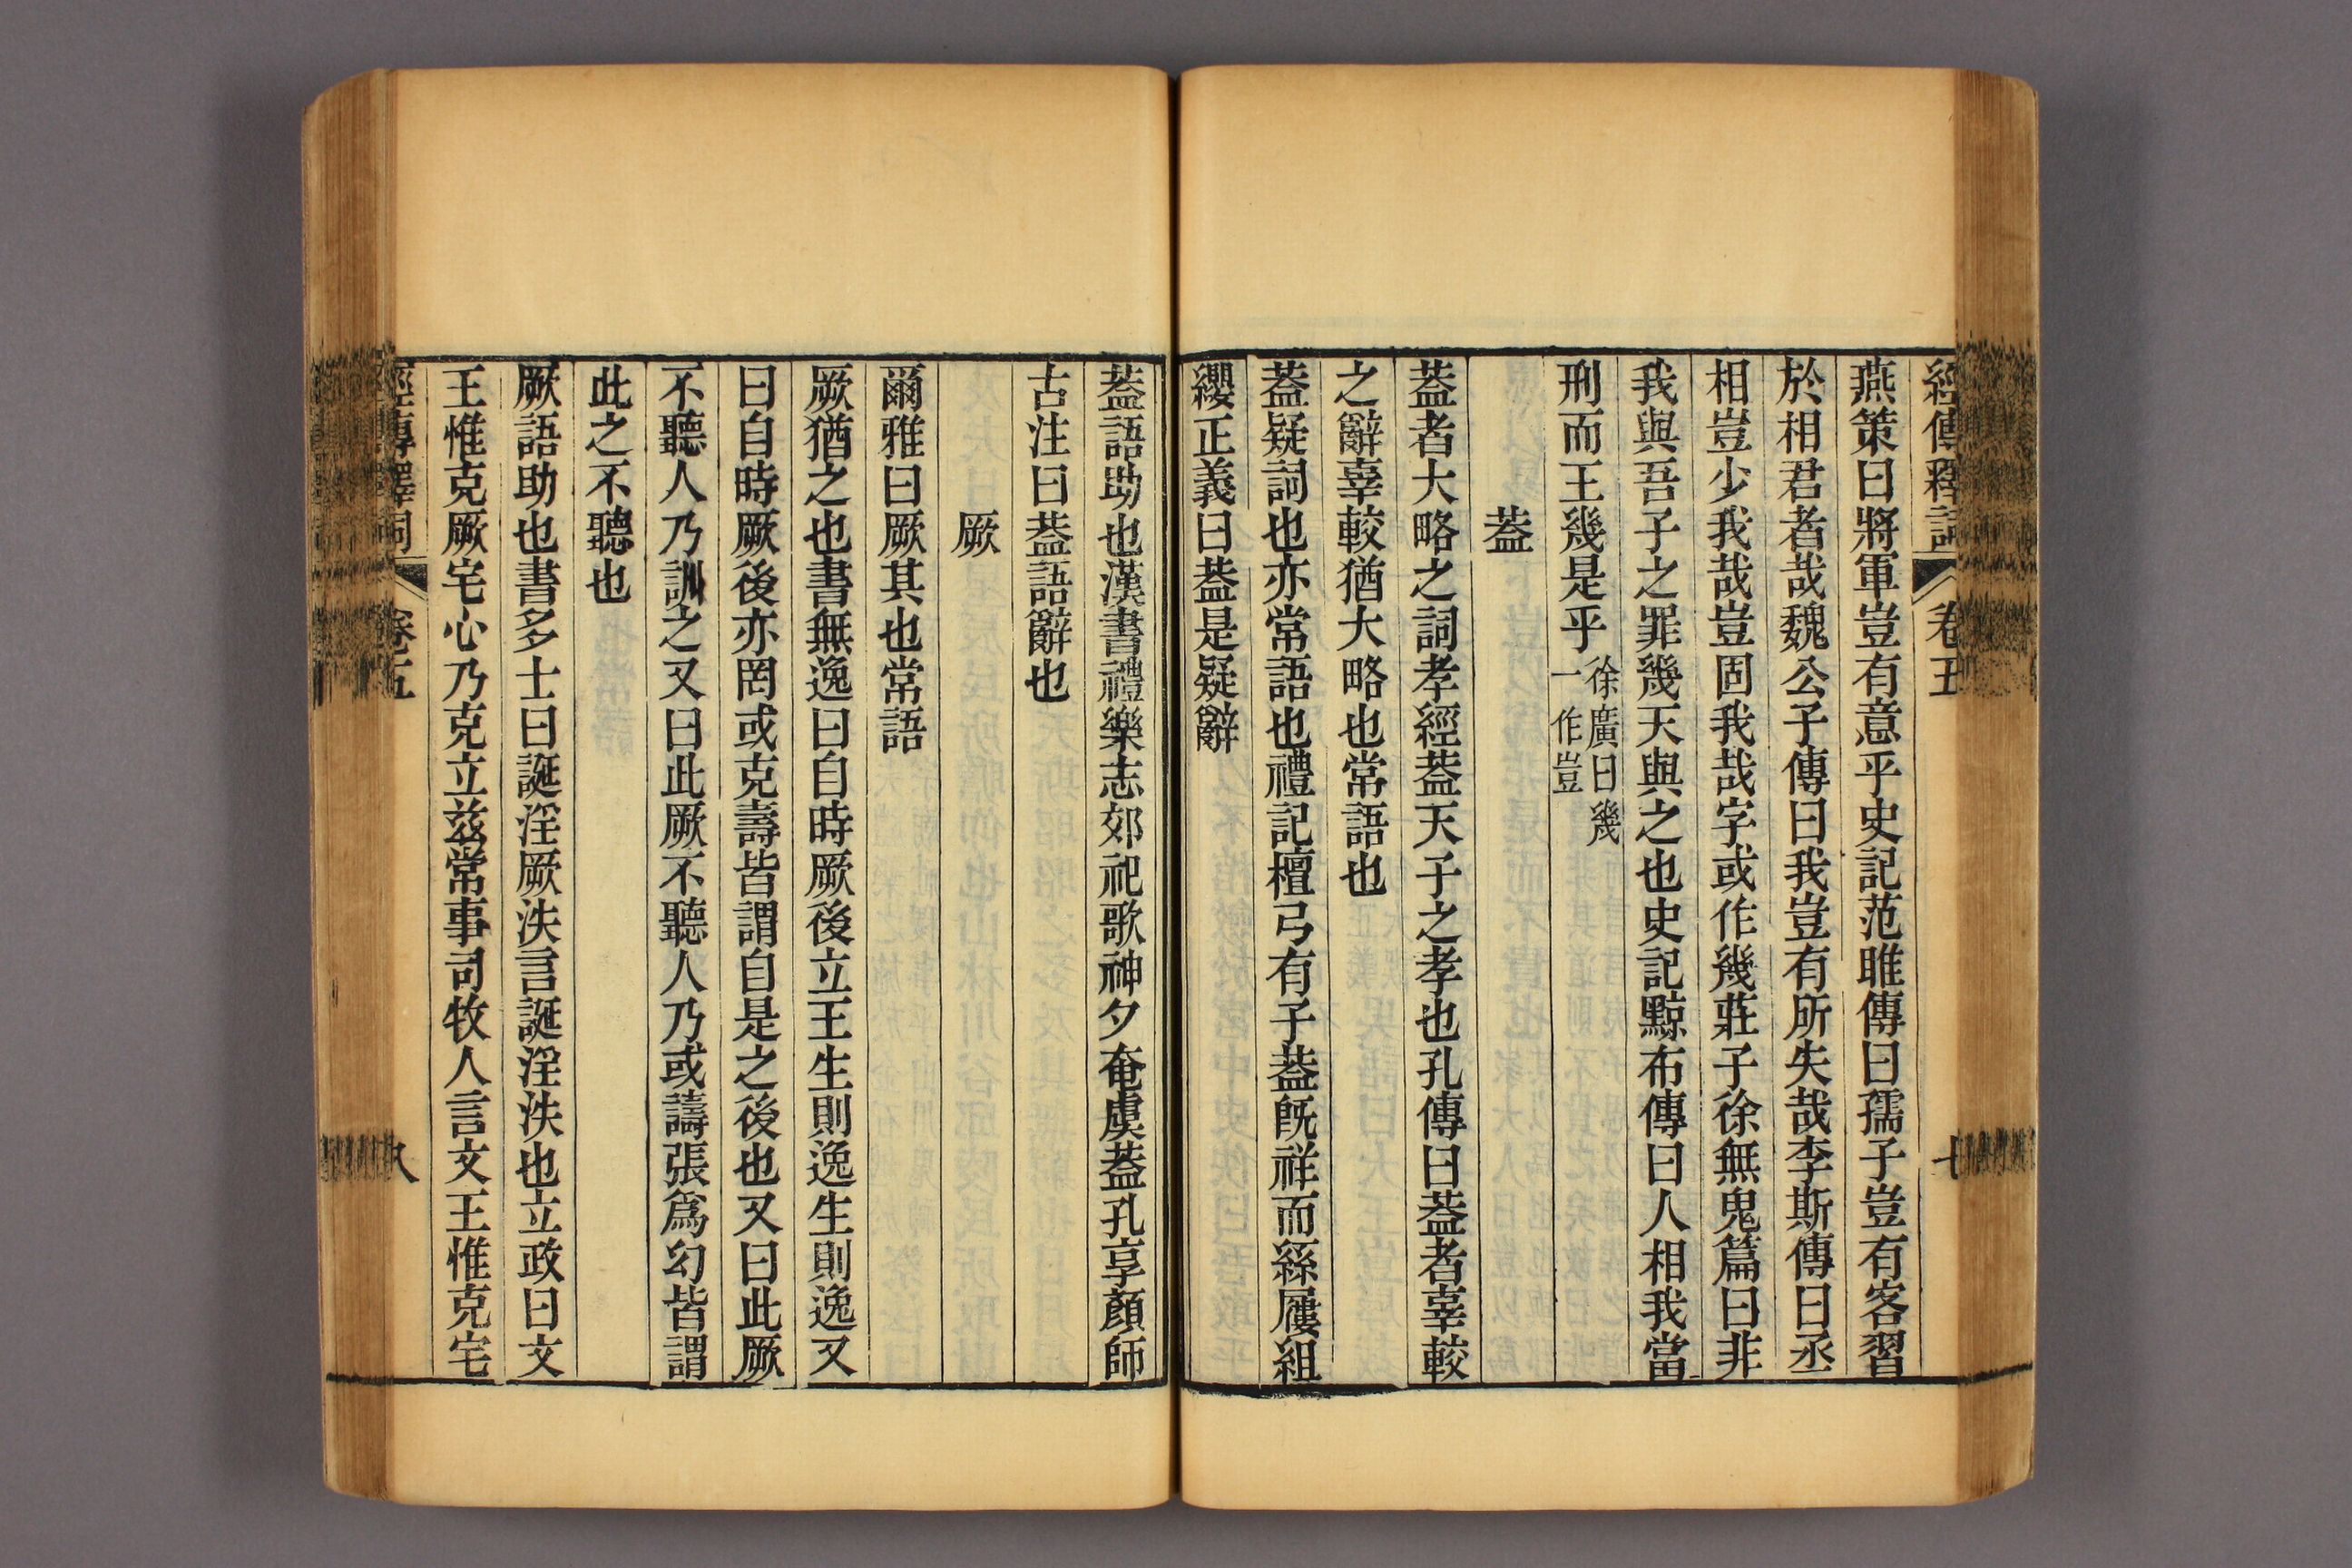 經傳釋詞 卷五 七
燕策曰將軍豈有意乎史記范雎傳曰孺子豈有客習
於相君者哉魏公子傳曰我豈有所失哉李斯傳曰丞
相豈少我哉豈固我哉字或作幾莊子徐無鬼篇曰非
我與吾子之罪幾天與之也史記黥布傳曰人相我當
刑而王幾是乎徐廣曰幾一作豈
葢
葢者大略之詞孝經葢天子之孝也孔傳曰葢者辜較
之辭辜較猶大略也常語也
葢疑詞也亦常語也禮記檀弓有子葢旣祥而絲屨組
纓正義曰葢是疑辭
葢語助也漢書禮樂志郊祀歌神夕奄虞葢孔享顏師
古注曰葢語辭也
厥
爾雅曰厥其也常語
厥猶之也書無逸曰自時厥後立王生則逸生則逸又
曰自時厥後亦罔或克壽皆謂自是之後也又曰此厥
不聽人乃訓之又曰此厥不聽人乃或譸張爲幻皆謂
此之不聽也
厥語助也書多士曰誕淫厥泆言誕淫泆也立政曰文
王惟克厥宅心乃克立兹常事司牧人言文王惟克宅
經傳釋詞 卷五 八